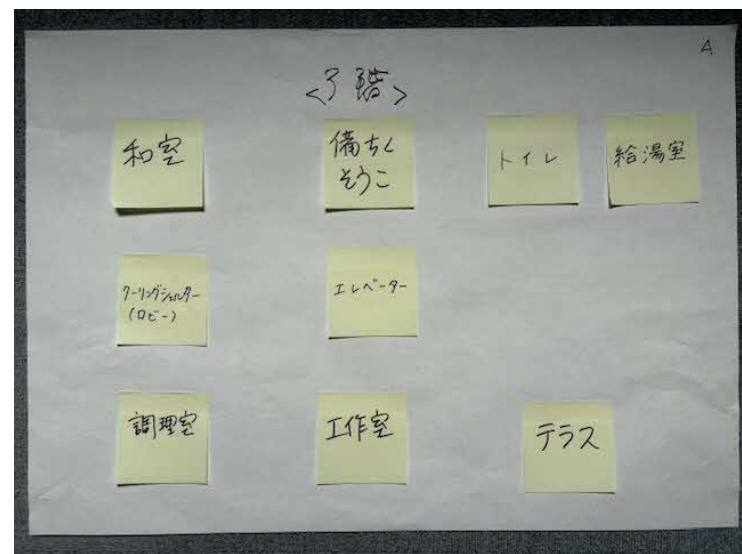 A
<3階>
和室
備ちく
そうこ
トイレ
給湯室
クーリングシェルター
(ロビー)
エレベーター
調理室
工作室
テラス